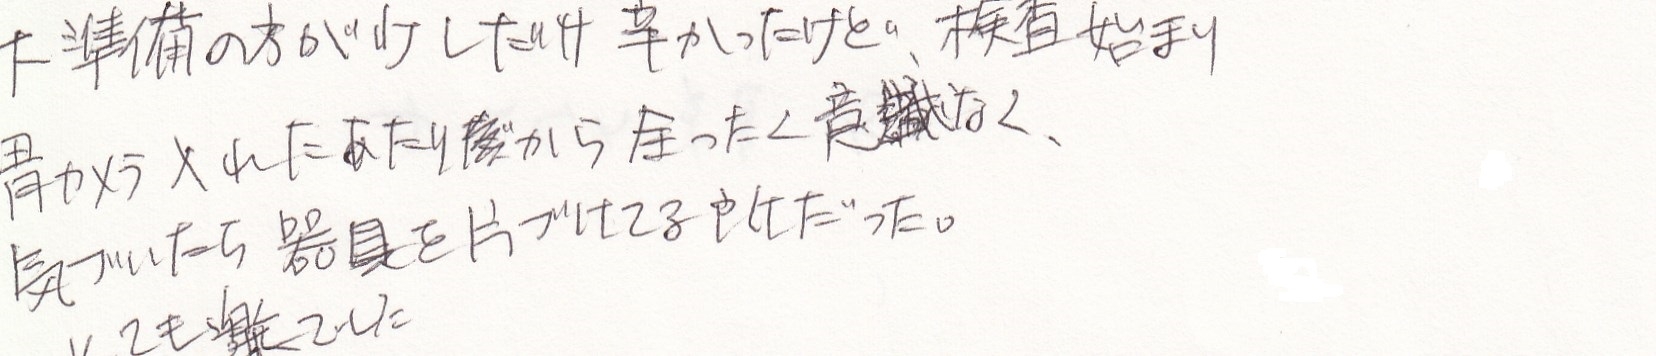 下準備の方が少しだけ辛かったけど、検査始まり
胃カメラ入れたあたりからまったく意識なく、
気づいたら器具を片づけてる時だった。
とても楽でした